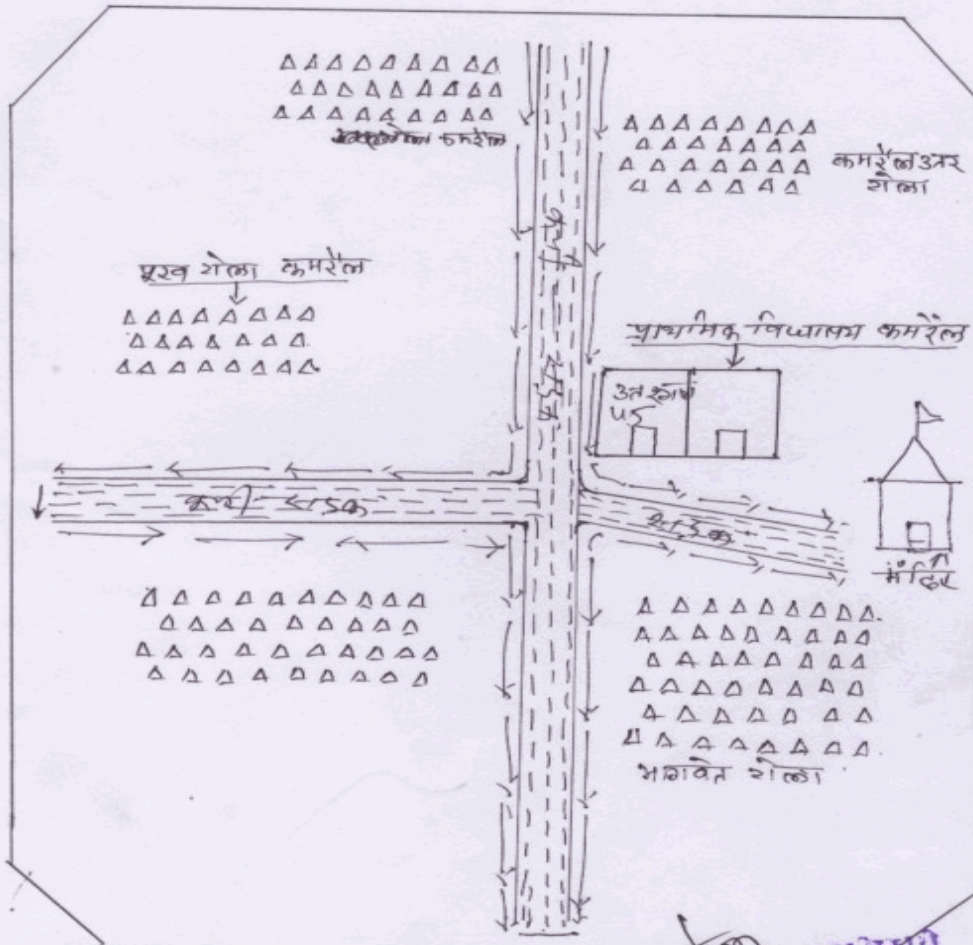 कमरैल
कमरैल उतर
टोला
पूरब टोला कमरैल
प्राथमिक विद्यालय कमरैल
उतर भाग
पक्की
सड़क
कच्ची सड़क
सड़क
मंदिर
भागवेत टोला